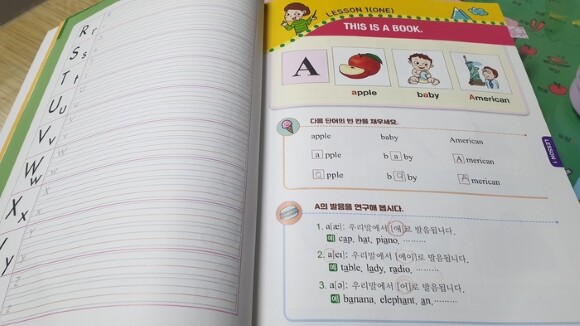 R r
S s
T t
U u
V v
W w
X x
Y y
LESSON 1(ONE)
THIS IS A BOOK.
A
apple
baby
American
다음 단어의 빈 칸을 채우세요.
apple baby American
a pple b a by A merican
a pple b a by A merican
LESSON 1
A의 발음을 연구해 봅시다.
1. a[æ]: 우리말에서 [애]로 발음됩니다.
예 cap, hat, piano, ………
2. a[ei]: 우리말에서 [에이]로 발음됩니다.
예 table, lady, radio, ………
3. a[ə]: 우리말에서 [어]로 발음됩니다.
예 banana, elephant, an, ………